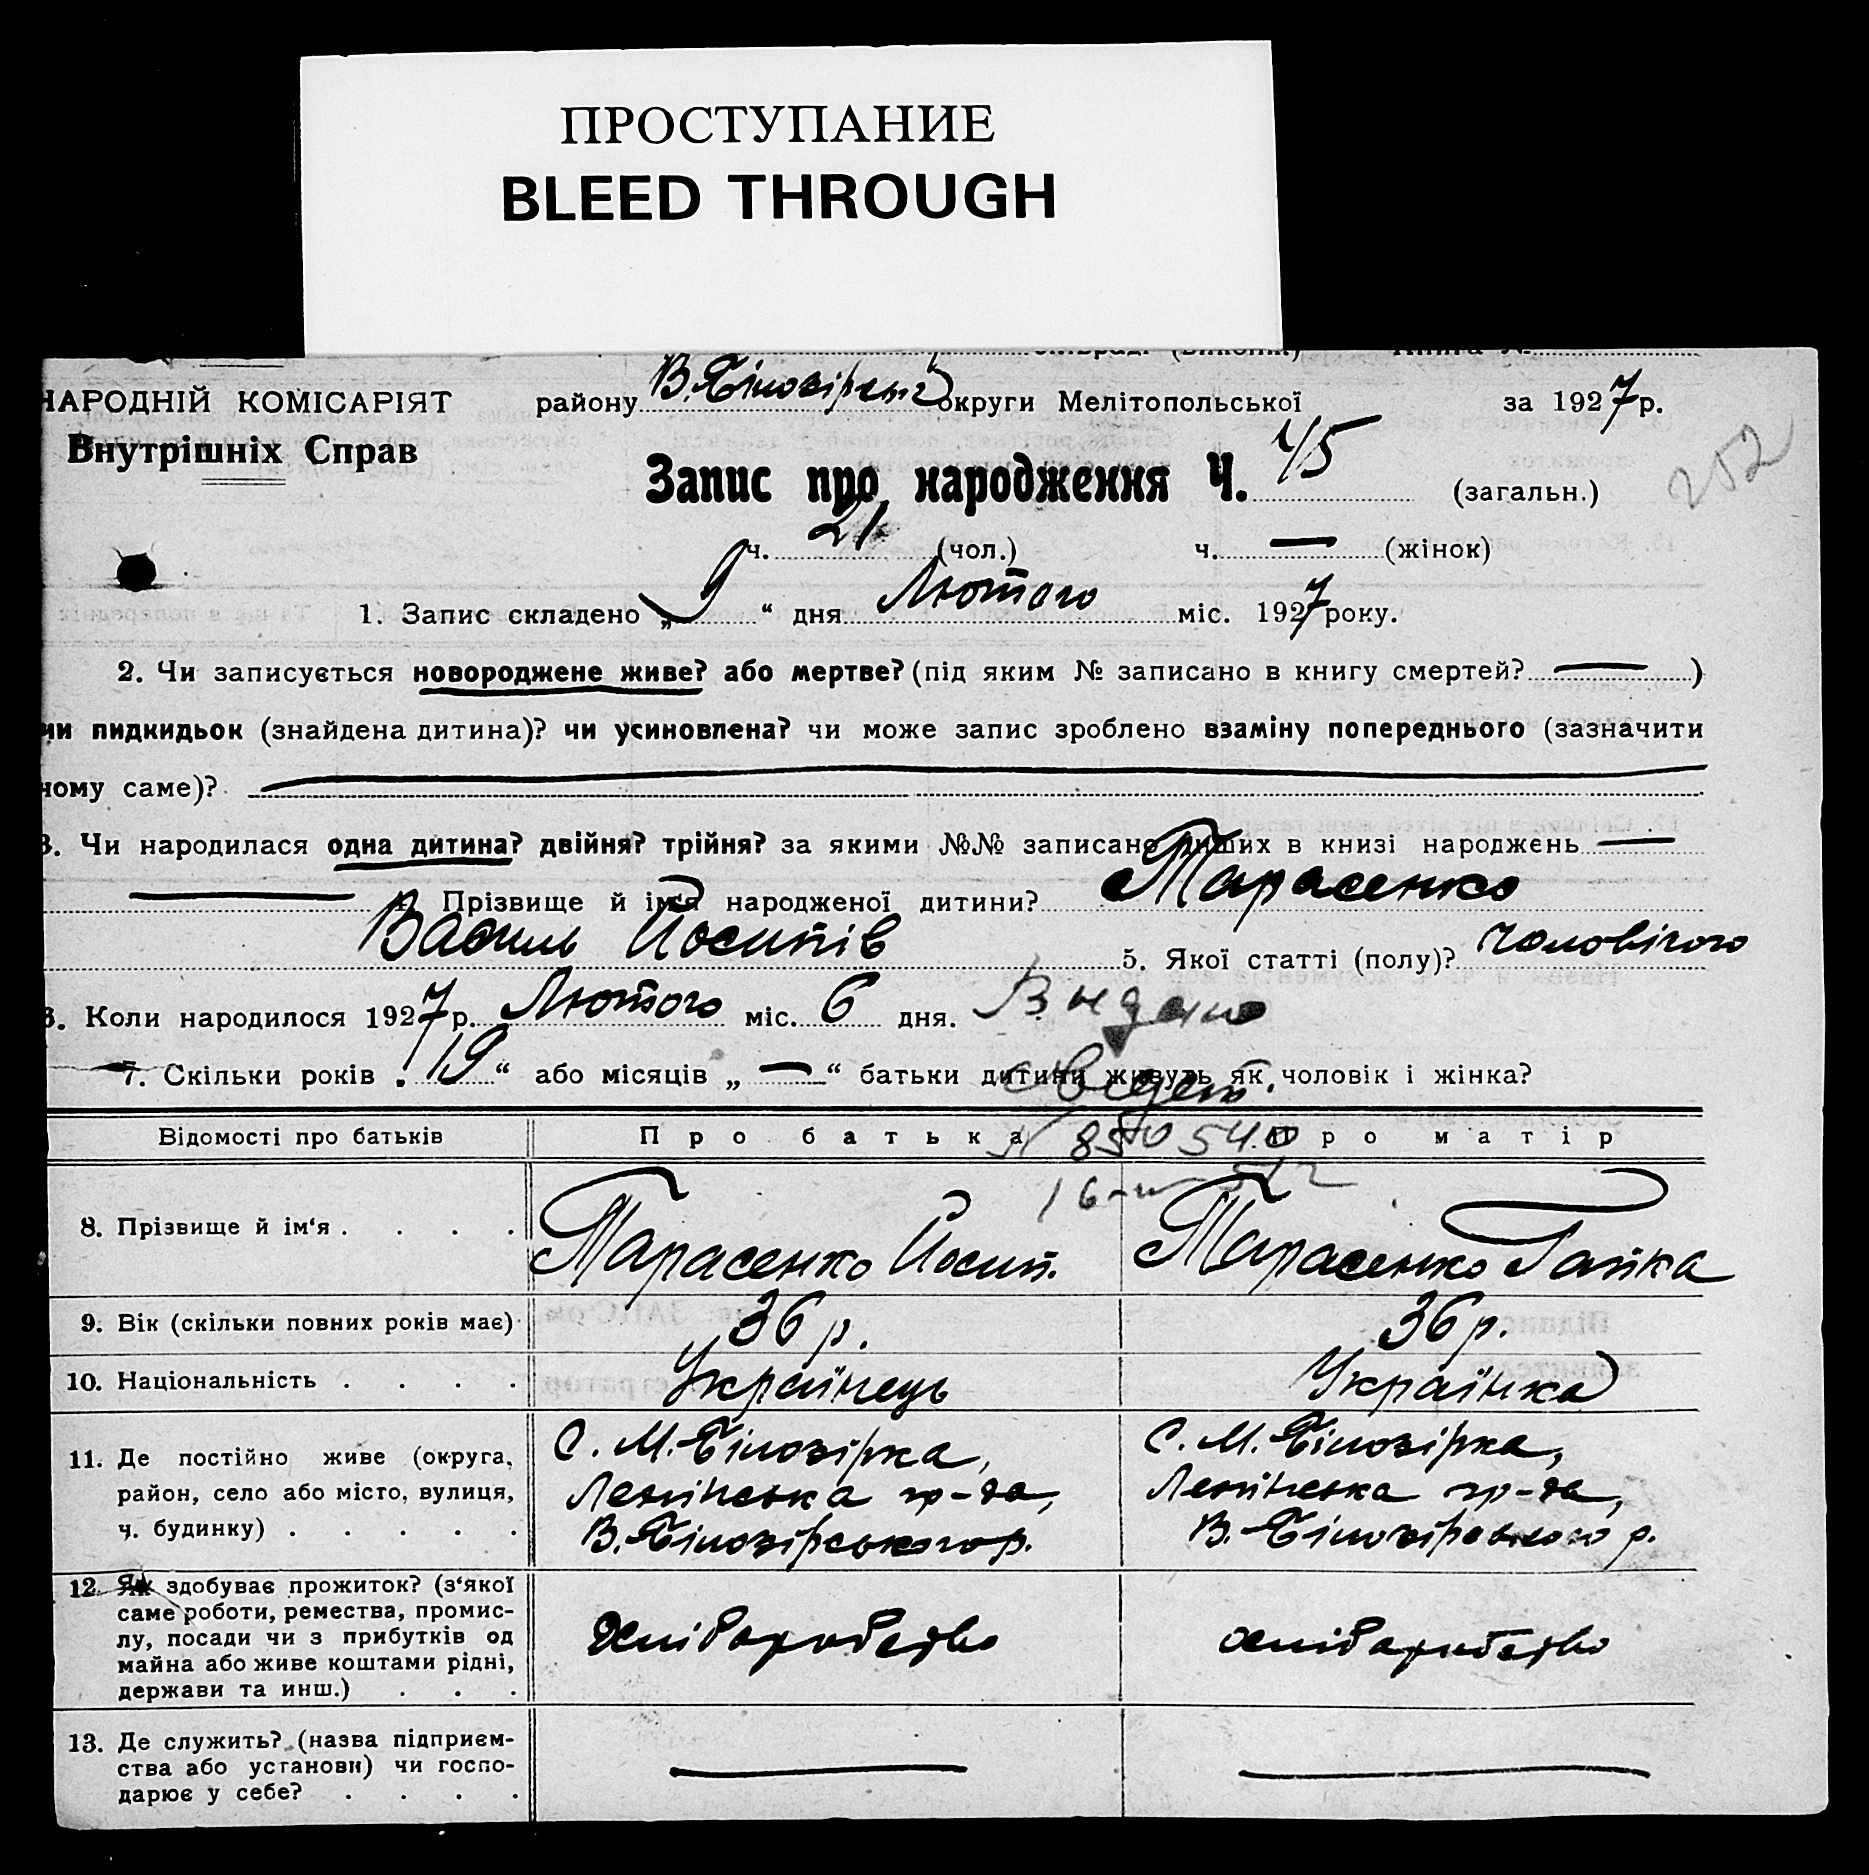 ПРОСТУПАНИЕ
BLEED THROUGH
НАРОДНІЙ КОМІСАРІЯТ району В. Білозірськ округи Мелітопольської за 1927 р.
Внутрішніх Справ
Запис про народження Ч. 45 (загальн.) 252
ч. 21 (чол.) ч. — (жінок)
1. Запис складено „ 9 “ дня Лютого міс. 1927 року.
2. Чи записується новороджене живе? або мертве? (під яким № записано в книгу смертей? — )
чи пидкидьок (знайдена дитина)? чи усиновлена? чи може запис зроблено взаміну попереднього (зазначити
чому саме)?
3. Чи народилася одна дитина? двійня? трійня? за якими №№ записано инших в книзі народжень —
— Прізвище й ім'я народженої дитини? Тарасенко
Василь Йосипів 5. Якої статті (полу)? чоловічого
6. Коли народилося 1927 р. Лютого міс. 6 дня. Выдано
7. Скільки років „ 19 “ або місяців „ — “ батьки дитини живуть як чоловік і жінка?
свидет.
Відомості про батьків Про батька Про матір
№ 850540
8. Прізвище й ім‘я . . . . Тарасенко Йосип. Тарасенко Гапка
9. Вік (скільки повних років має) 36 р. 36 р.
10. Національність . . . . Українець Українка
11. Де постійно живе (округа, С. М. Білозірка, С. М. Білозірка,
район, село або місто, вулиця, Ленінська гр-да, Ленінська гр-да,
ч. будинку) . . . . . В. Білозірського р. В. Білозірського р.
12. Як здобуває прожиток? (з‘якої
саме роботи, ремества, промис-
лу, посади чи з прибутків од хліборобство хліборобство
майна або живе коштами рідні,
держави та инш.) . . .
13. Де служить? (назва підприєм-
ства або установи) чи госпо- — —
дарює у себе? . . . .